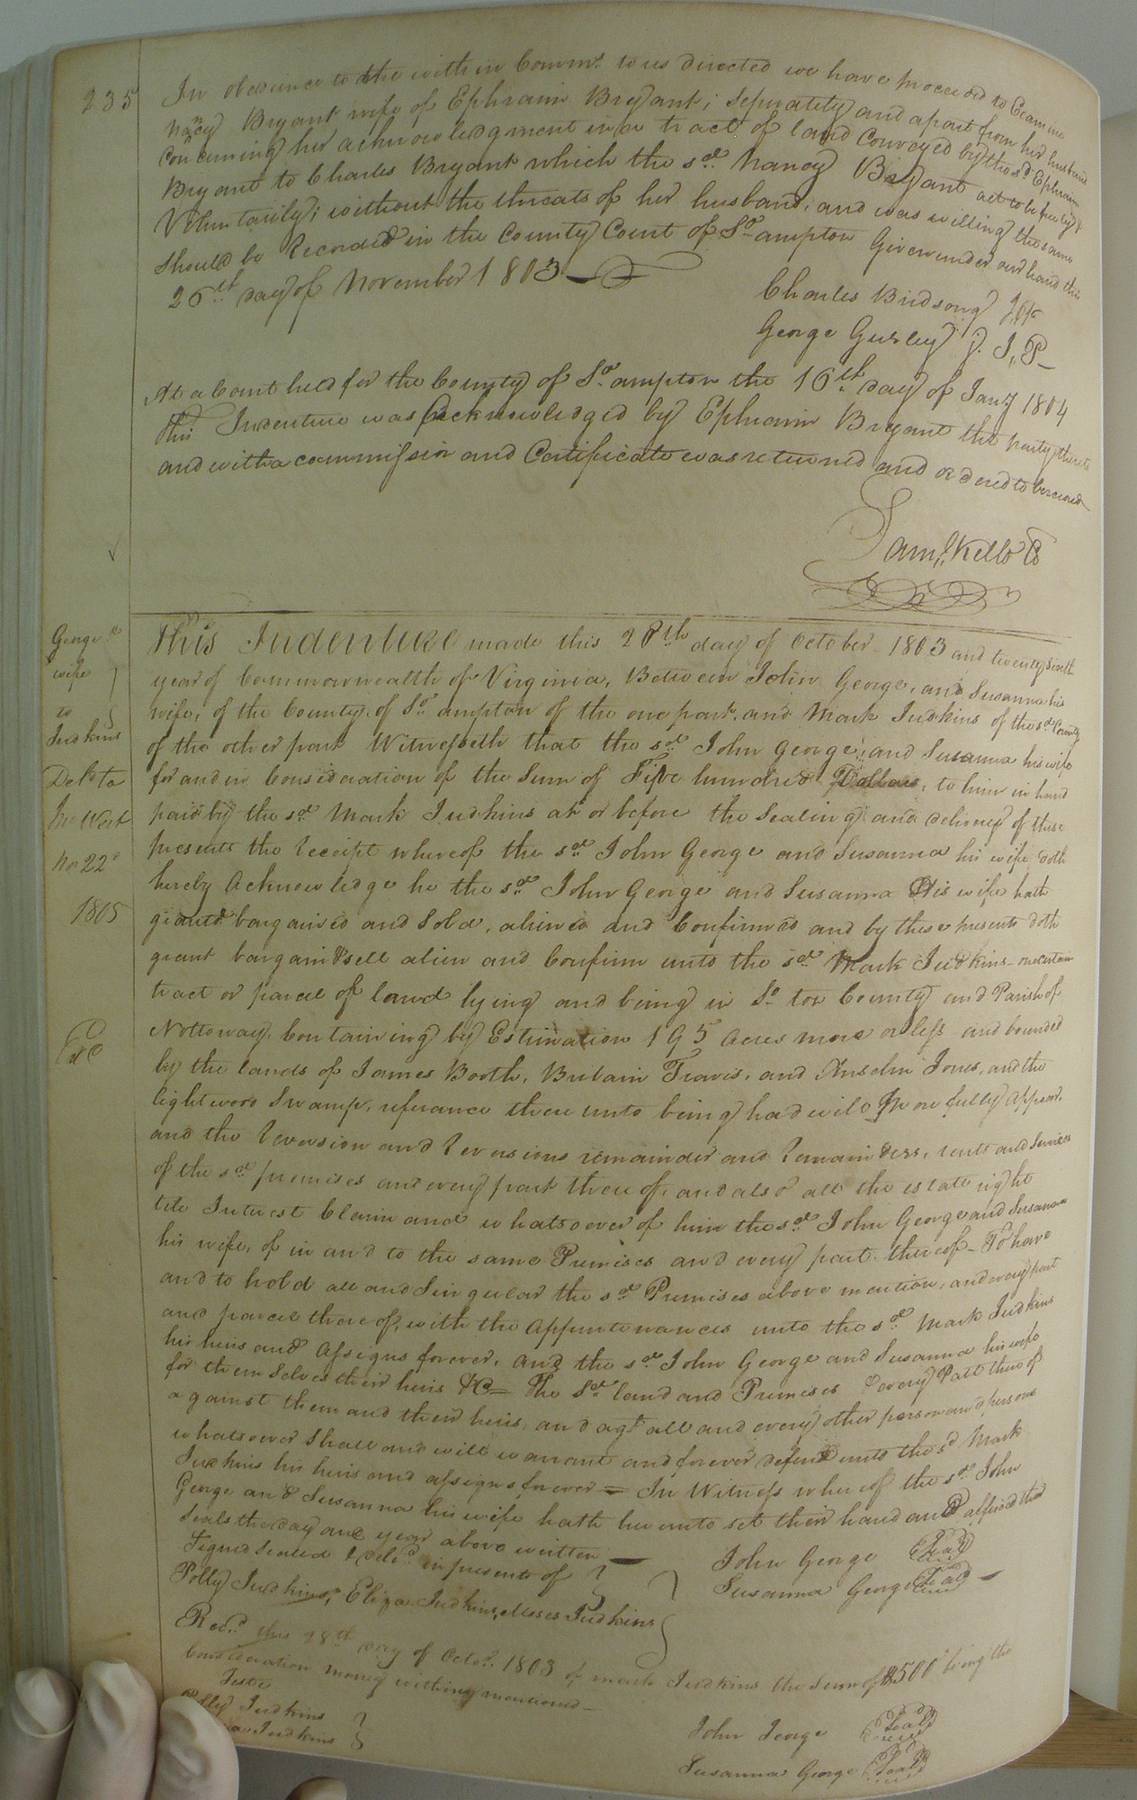 235
In obedience to the within Comms. to us directed we have proceeded to Examine
Nancy Bryant wife of Ephraim Bryant; seperately and apart from her husband
Concerning her acknowledgment in a tract of land Conveyed by the sd Ephraim
Bryant to Charles Bryant which the sd. Nancy Bryant act to be freely &
Voluntarily; without the threats of her husband; and was willing the same
should be Recorded in the County Court of So.ampton Given under our hand this
26th day of November 1803
Charles Birdsong J,P
George Gurley J. J,P
At a Court held for the County of So.ampton the 16th day of Jany 1804
this Indenture was Acknowledged by Ephraim Bryant the party thereto
and with a commission and Certificate was returned and ordered to be record
Saml. Kello C
George &
wife
to
Judkins
Deld to
Jno West
Nor 22d
1805
This Indenture made this 28th day of October 1803 and twenty
year of Commonwealth of Virginia, Between John George, and Susanna his
wife, of the County of So.ampton of the one part, and Mark Judkins of the sd. County
of the other part Witnesseth that the sd John George, and Susanna his wife
for and in Consideration of the sum of Five hundred Dollars, to him in hand
paid by the sd. Mark Judkins at or before the Sealing and delivery of these
presents the receipt whereof the sd John George and Susanna his wife doth
hereby Acknowledge he the sd. John George and Susanna His wife hath
granted bargained and Sold, aliened and Confirmed and by these presents doth
grant bargain & sell alien and Confirm unto the sd Mark Judkins one certain
tract or parcel of land lying and being in So. ton County and Parish of
Nottoway, Containing by Estimation 195 acres more or less and bounded
by the lands of James Booth, Britain Travis, and Anselm Jones, and the
lightwood Swamp, referance there unto being had will More fully appear,
and the reversion and reversions remainder and remainders, rents and Services
of the sd premises and every part thereof, and also all the estate right
title Interest Claim and whatsoever of him the sd John George and Susanna
his wife, of in and to the same Premises and every part thereof - To have
and to hold all and Singular the sd Premises above mention, and every part
and parcel there of, with the Appurtenances unto the sd Mark Judkins
his heirs and Assigns forever, and the sd John George and Susanna his wife
for them Selves their heirs &C= The sd land and Premises & every Part thereof
against them and their heirs, and agt all and every other person and persons
whatsoever Shall and will warrant and forever defend unto the sd Mark
Judkins his heirs and assigns forever = In Witness whereof the sd. John
George and Susanna his wife hath hereunto set their hand and affixed their
seals the day and year above written
Signed Sealed & deld. in presents of
Polly Judkins, Eliza Judkins, Moses Judkins
John George Seal
Susanna George Seal
Recd. this 28th day of Octo. 1803 of mark Judkins the sum of $500 being the
Consideration money within mentioned
Teste
Polly Judkins
Judkins
John George Seal
Susanna George Seal